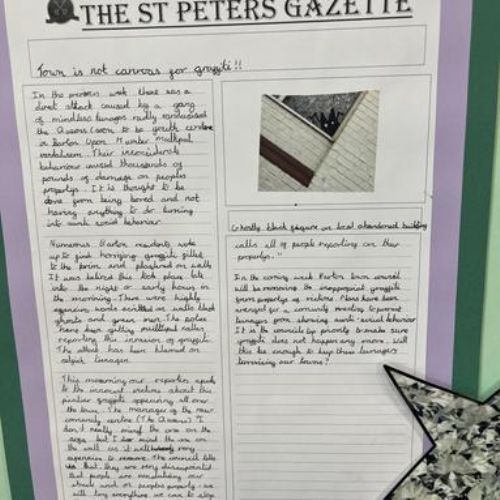 THE ST PETERS GAZETTE
Town is not canvas for graffiti!!
In the previous week there was a
direct attack caused by a gang
of mindless teenagers
the Queens (soon to be youth centre
in Barton Upon Humber
vandalism. Their inconsiderate
behaviour caused thousands of
pounds of damage on peoples
propertys. It is thought to be
done from being bored and not
having anything to do turning
into anti social behaviour.
Numerous Barton residents woke
up to find horrifying graffiti filled
to the brim and plastered on walls
It was believed this took place late
into the night or early hours in
the morning. There were highly
words scribbled on walls black
ghosts and green men. The police
have been getting multipul calls
reporting this invasion of graffiti.
The attack has been blamed on
teenagers.
This morning our reporter spoke
to the innocent victims about this
peculiar graffiti appearing all over
the town. The manager of the new
community centre (The Queens) "I
don't really mind the one on the
sign but I do mind the one on
the wall as it will very
expensive to remove. The council tells
us that they are very dissapointed
that people are vandalising our
streets and or peoples propertys we
will try everything we can to stop
Ghostly black figure on local abandoned building
calls all of people reporting on their
propertys."
In the coming week Barton town council
will be removing the inappropriate graffiti
from propertys of victims. Plans have been
arranged for a comunity meeting to prevent
teenagers from showing anti social behaviour
It is the councils top priority to make sure
graffiti does not happen any more. Will
this be enough to keep these teenagers
terrorising our towns?